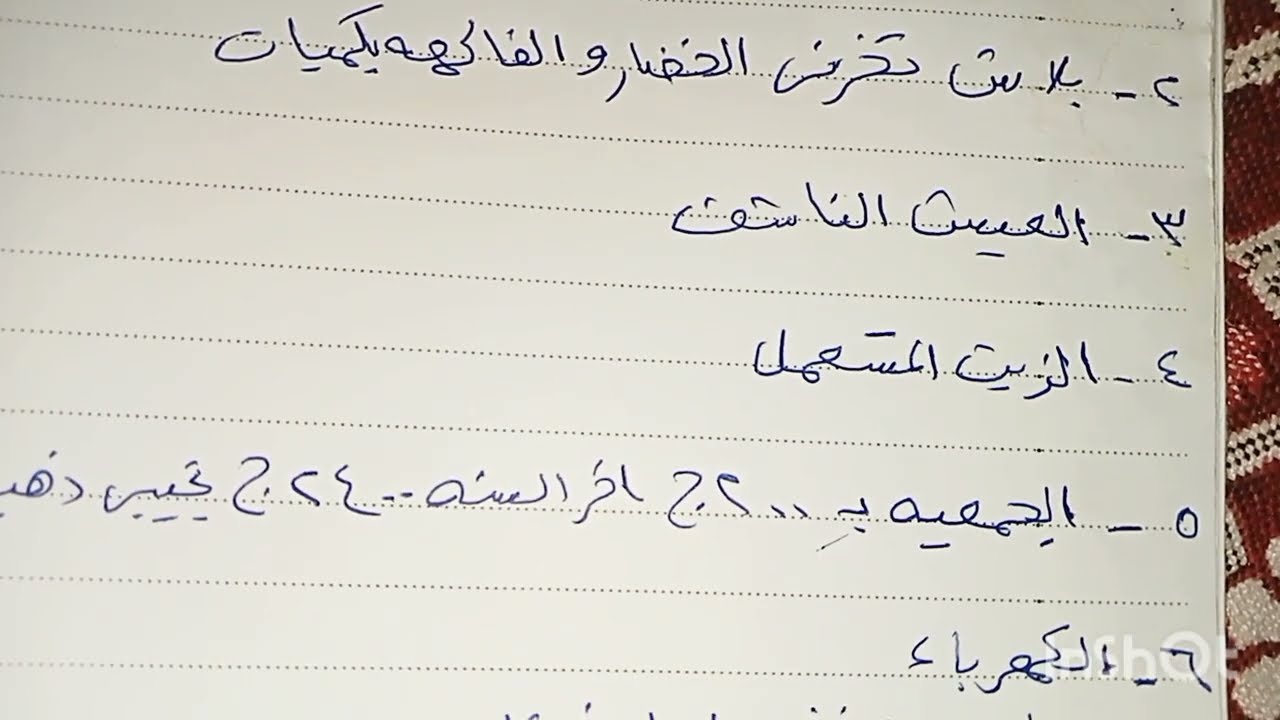 ٢- بلاش تخزين الخضار و الفاكهه بكميات
٣- العيش الناشف
٤- الزيت المستعمل
٥- الجمعيه بـ ٢٠٠ ج اخر السنه ٢٤٠٠ ج تجيب دهب
٦- الكهرباء
InShOt